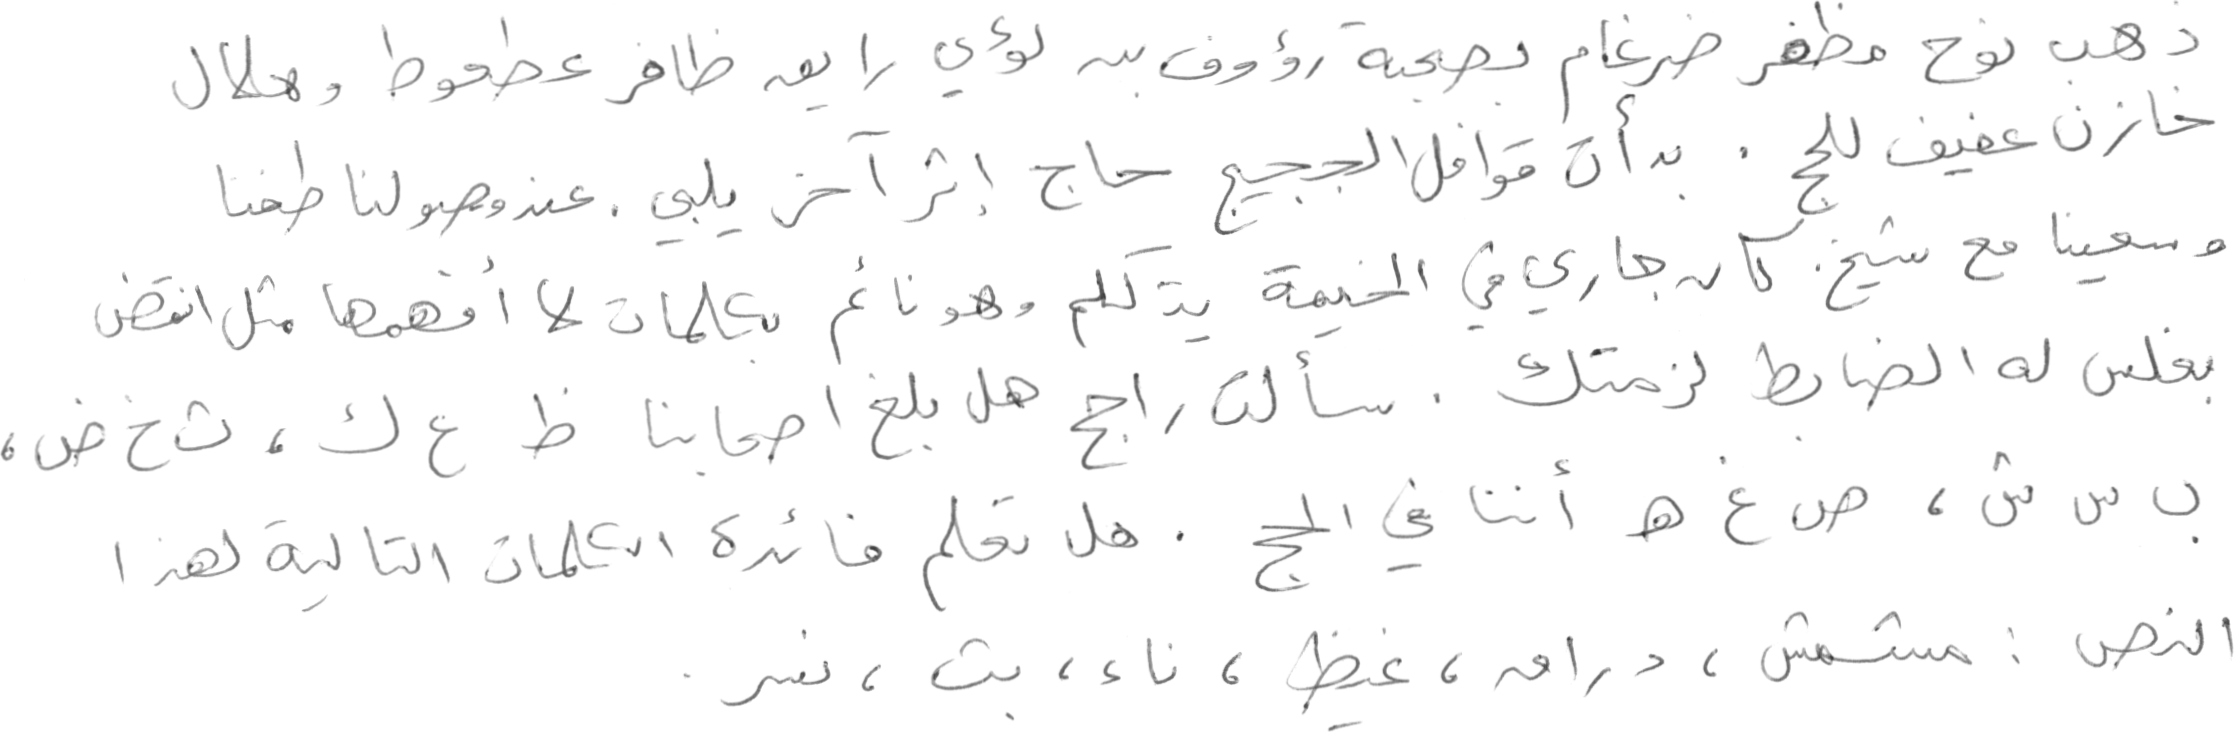 ذهب نوح مظفر ضرغام بصحبة رؤوف بن لؤي رايق ظافر عطعوط وهلال
خازن عفيف للحج . بدأت قوافل الحجيج حاج إثر آخر يلبي . عند وصولنا طفنا
وسعينا مع شيخ . كان جاري في الخيمة يتكلم وهو نائم بكلمات لا أفهمها مثل انقض
بغلس له الضابط لزمتك . سألت راجح هل بلغ اصحابنا ظ ع ك ، ث خ ض ،
ب س ش ، ص غ ه أننا في الحج . هل تعلم فائدة الكلمات التالية لهذا
النص : مشمش ، دراق ، غيظ ، ناء ، بث ، نسر .